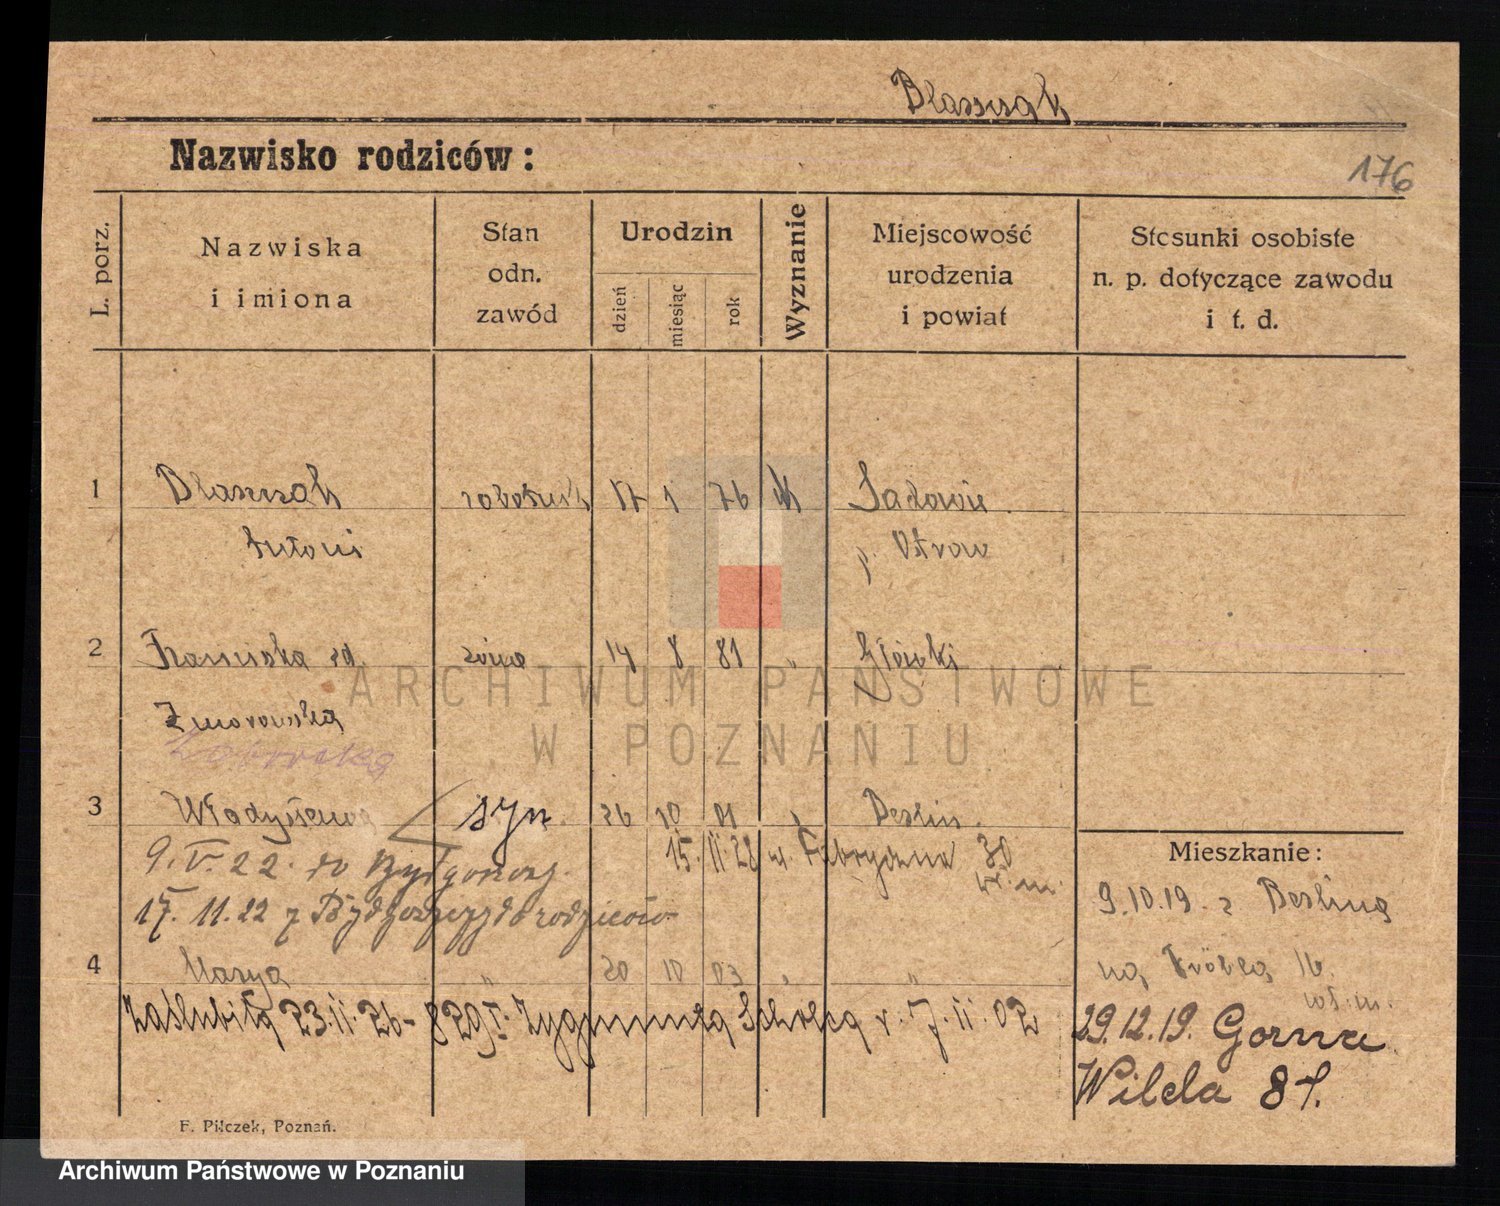 Nazwisko rodziców:
176
L. porz.
Nazwiska
i imiona
Stan
odn.
zawód
Urodzin
dzień
miesiąc
rok
Wyznanie
Miejscowość
urodzenia
i powiat
Stosunki osobiste
n. p. dotyczące zawodu
i t. d.
1 robotnik 17 1 76 k
Antoni p. Ostrow
2 Franciszka żona 14 8 81 „
ARCHIWUM PAŃSTWOWE
W POZNANIU
3 syn 26 10 01 Berlin.
9.V.22. do Bydgoszcz. 15.II.28 ul. Fabryczna 30
17.11.22 z Bydgoszczy do rodziców
Mieszkanie:
9.10.19. z Berlina
4 Marya „ 20 10 03 „
Zaślubiła 23.II.26 - Zygmunta r. 7.II.02
29.12.19. Gorna
Wilda 81.
F. Pilczek, Poznań.
Archiwum Państwowe w Poznaniu